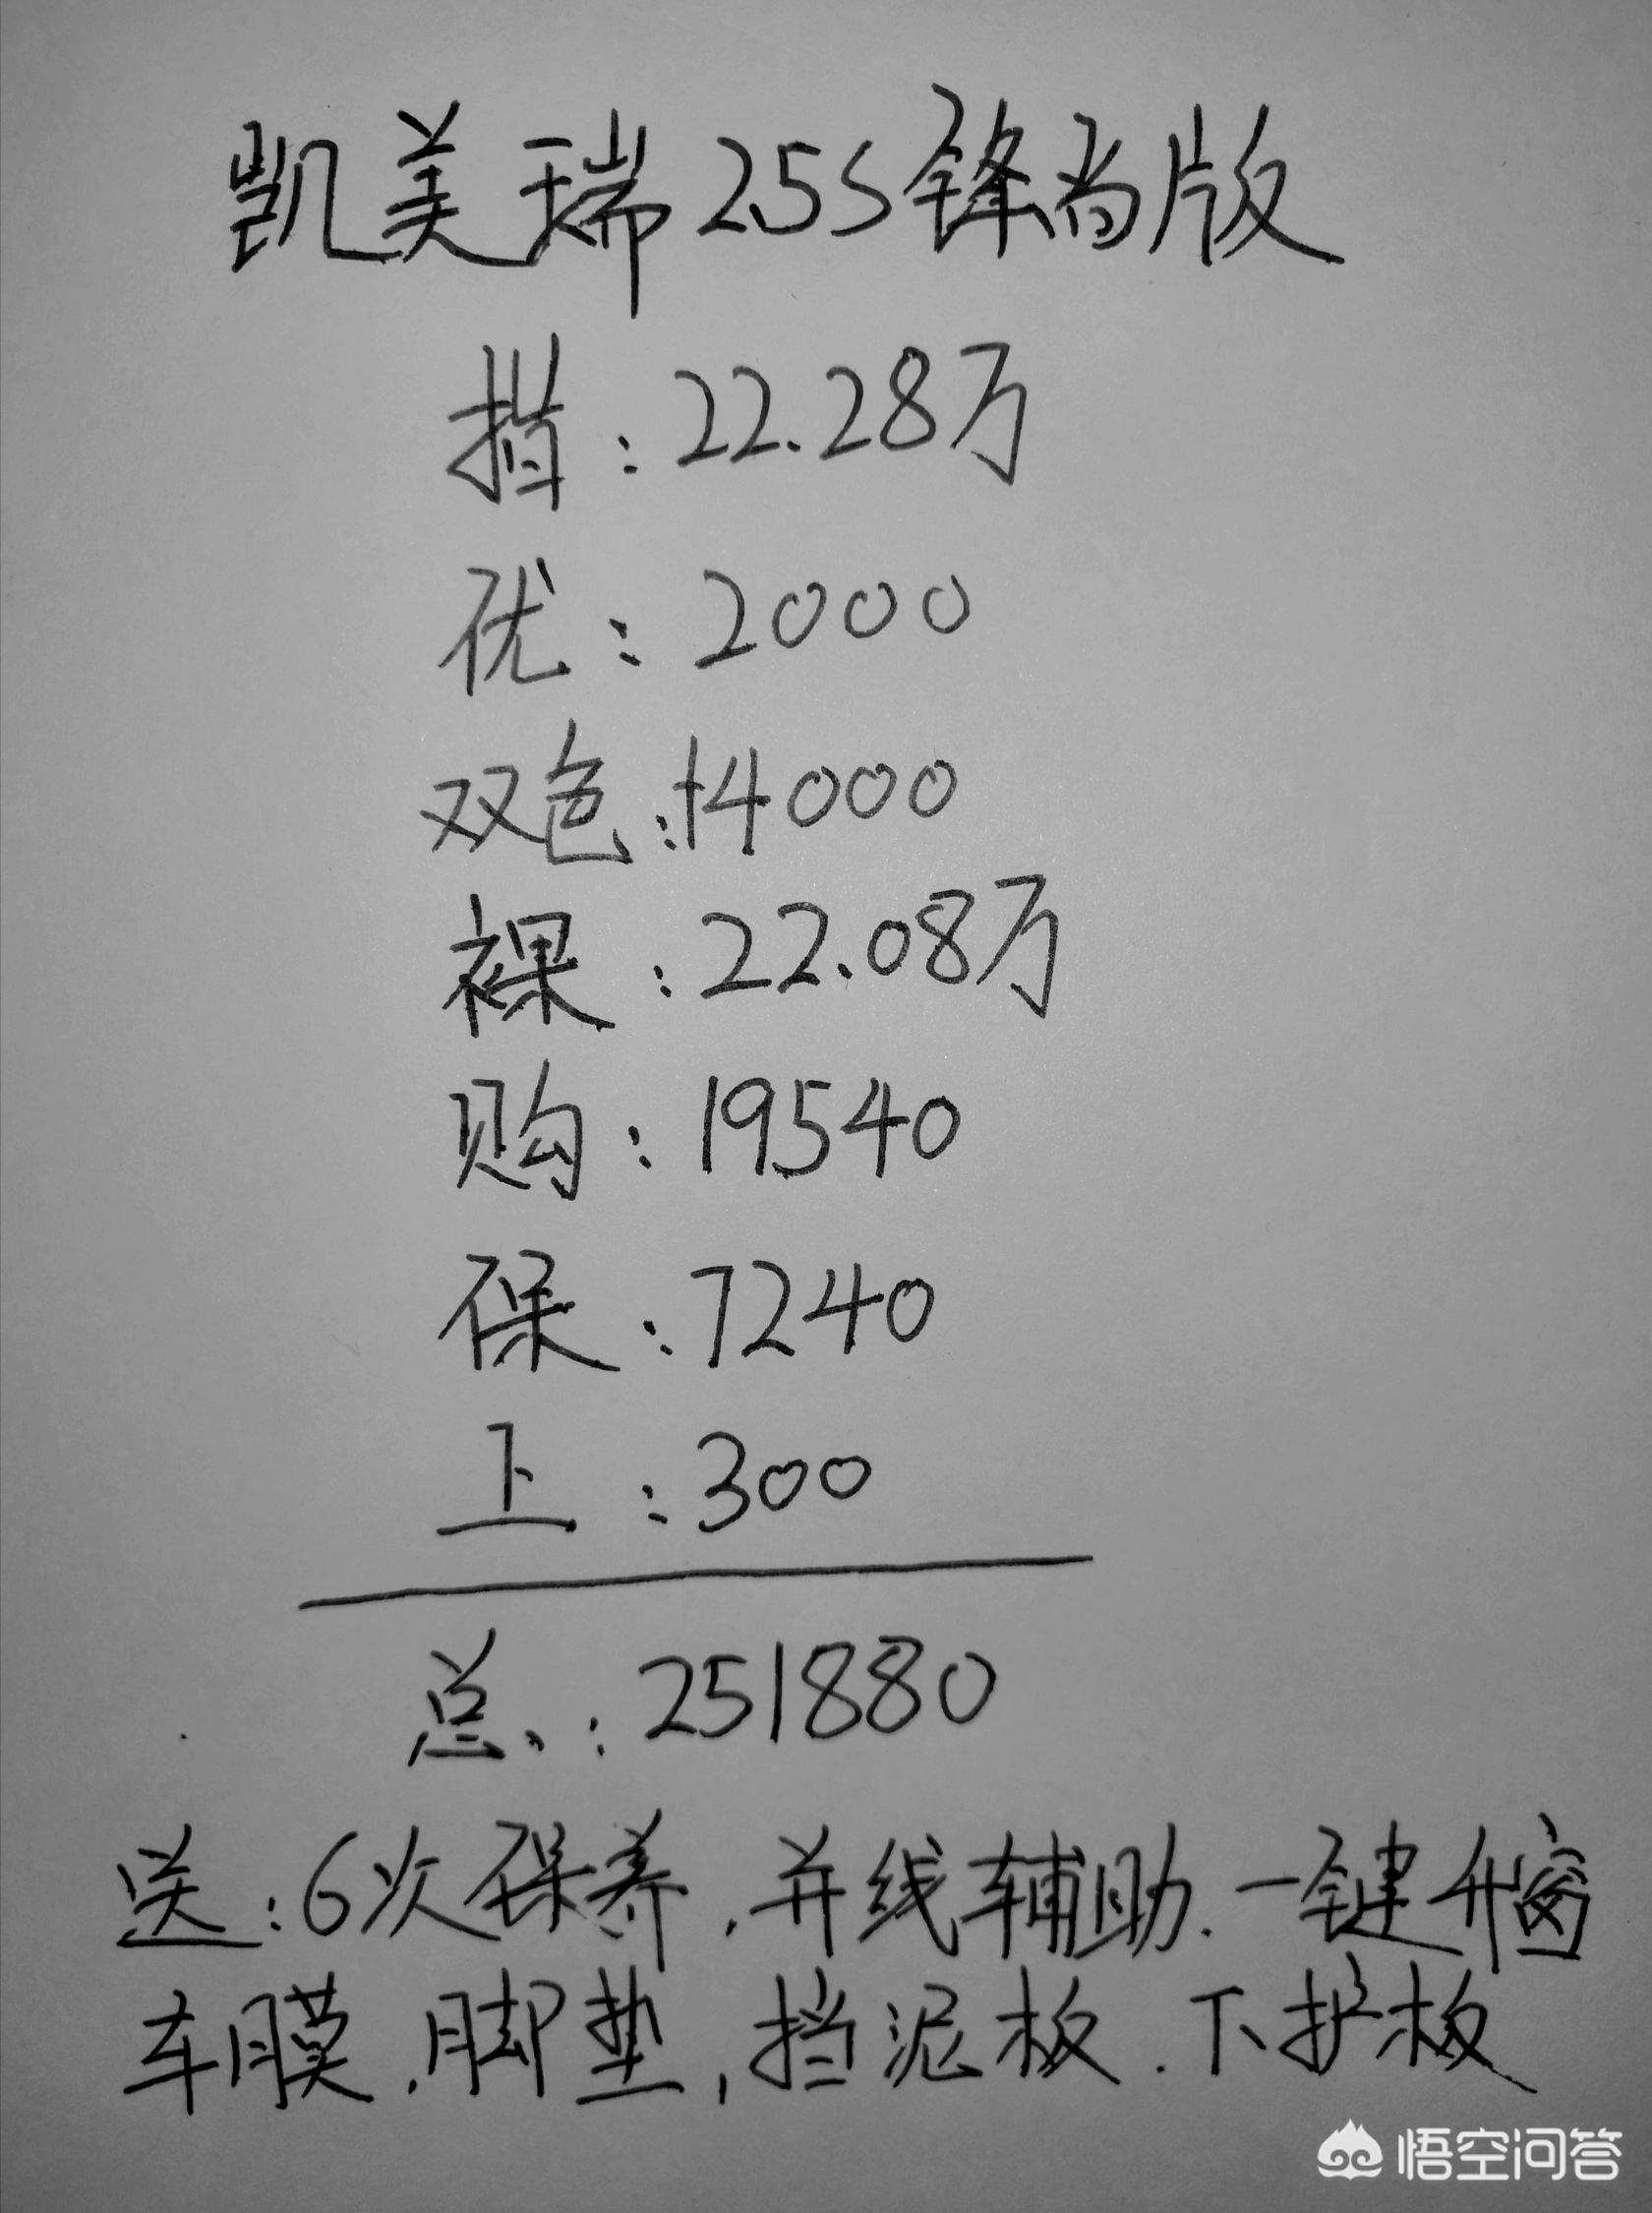 凯美瑞 2.5S锋尚版
指：22.28万
优：2000
双色：+4000
裸：22.08万
购：19540
保：7240
上：300
总：251880
送：6次保养，并线辅助．一键升窗
车膜．脚垫，挡泥板．下护板
悟空问答